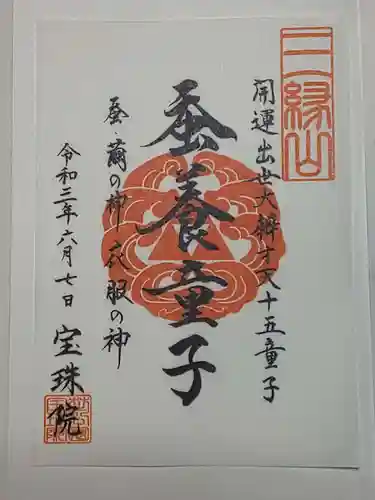 三縁山
開運出世大辨才天十五童子
蚕養童子
蚕・繭の神 衣服の神
令和三年六月七日
宝珠院